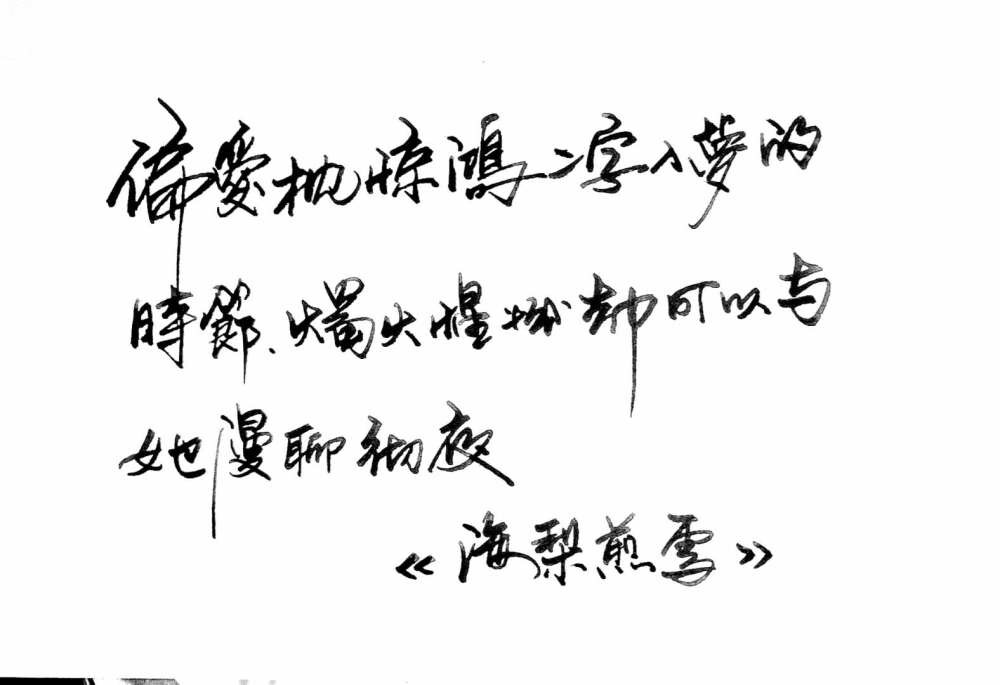 偏愛枕惊鴻二字入夢的
時節、燭火惺忪却可以与
她漫聊彻夜
《海梨煎雪》